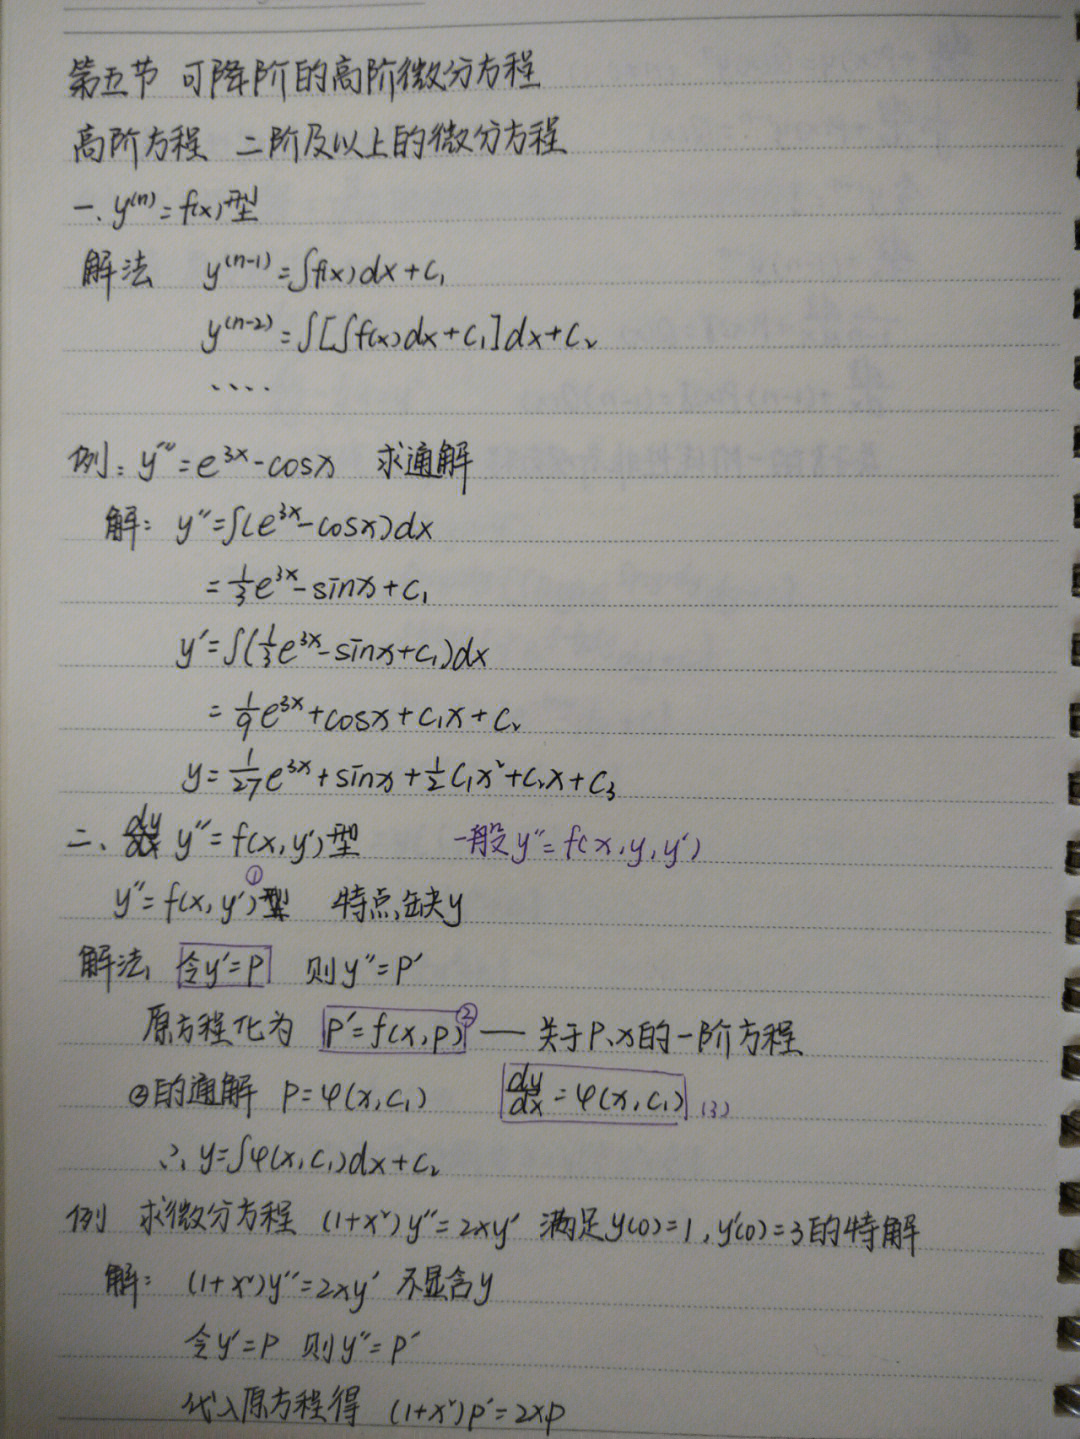 第五节 可降阶的高阶微分方程
高阶方程 二阶及以上的微分方程
一. y⁽ⁿ⁾=f(x)型
解法 y⁽ⁿ⁻¹⁾=∫f(x)dx+C₁
y⁽ⁿ⁻²⁾=∫[∫f(x)dx+C₁]dx+C₂
....
例: y'''=e³ˣ-cosx 求通解
解: y''=∫(e³ˣ-cosx)dx
=1/3e³ˣ-sinx+C₁
y'=∫(1/3e³ˣ-sinx+C₁)dx
=1/9e³ˣ+cosx+C₁x+C₂
y=1/27e³ˣ+sinx+1/2C₁x²+C₂x+C₃
二、 y''=f(x,y')型 一般y''=f(x,y,y')
y''=f(x,y')①型 特点,缺y
解法, 令y'=P 则y''=P'
原方程化为 P'=f(x,p)② — 关于P、x的一阶方程
②的通解 P=φ(x,C₁) dy/dx=φ(x,C₁) (3)
∴ y=∫φ(x,C₁)dx+C₂
例 求微分方程 (1+x²)y''=2xy' 满足y(0)=1,y'(0)=3的特解
解: (1+x²)y''=2xy' 不显含y
令y'=P 则y''=P'
代入原方程得 (1+x²)p'=2xp